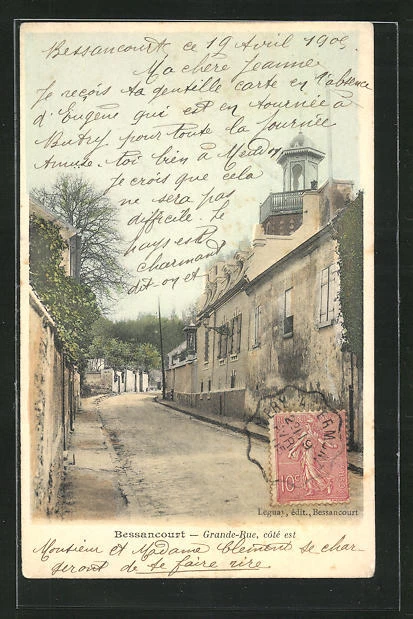 Bessancourt ce 19 Avril 190
Ma chère Jeanne
Je reçois ta gentille carte en l'absence
d'Eugène qui est en tournée à
Butry pour toute la journée
Amuse-toi bien à
Je crois que cela
ne sera pas
difficile. Le
pays est
charmant
dit-on et
10c
Leguay, édit., Bessancourt
Bessancourt — Grande-Rue, côté est
Monsieur et Madame Clement se char-
geront de te faire rire